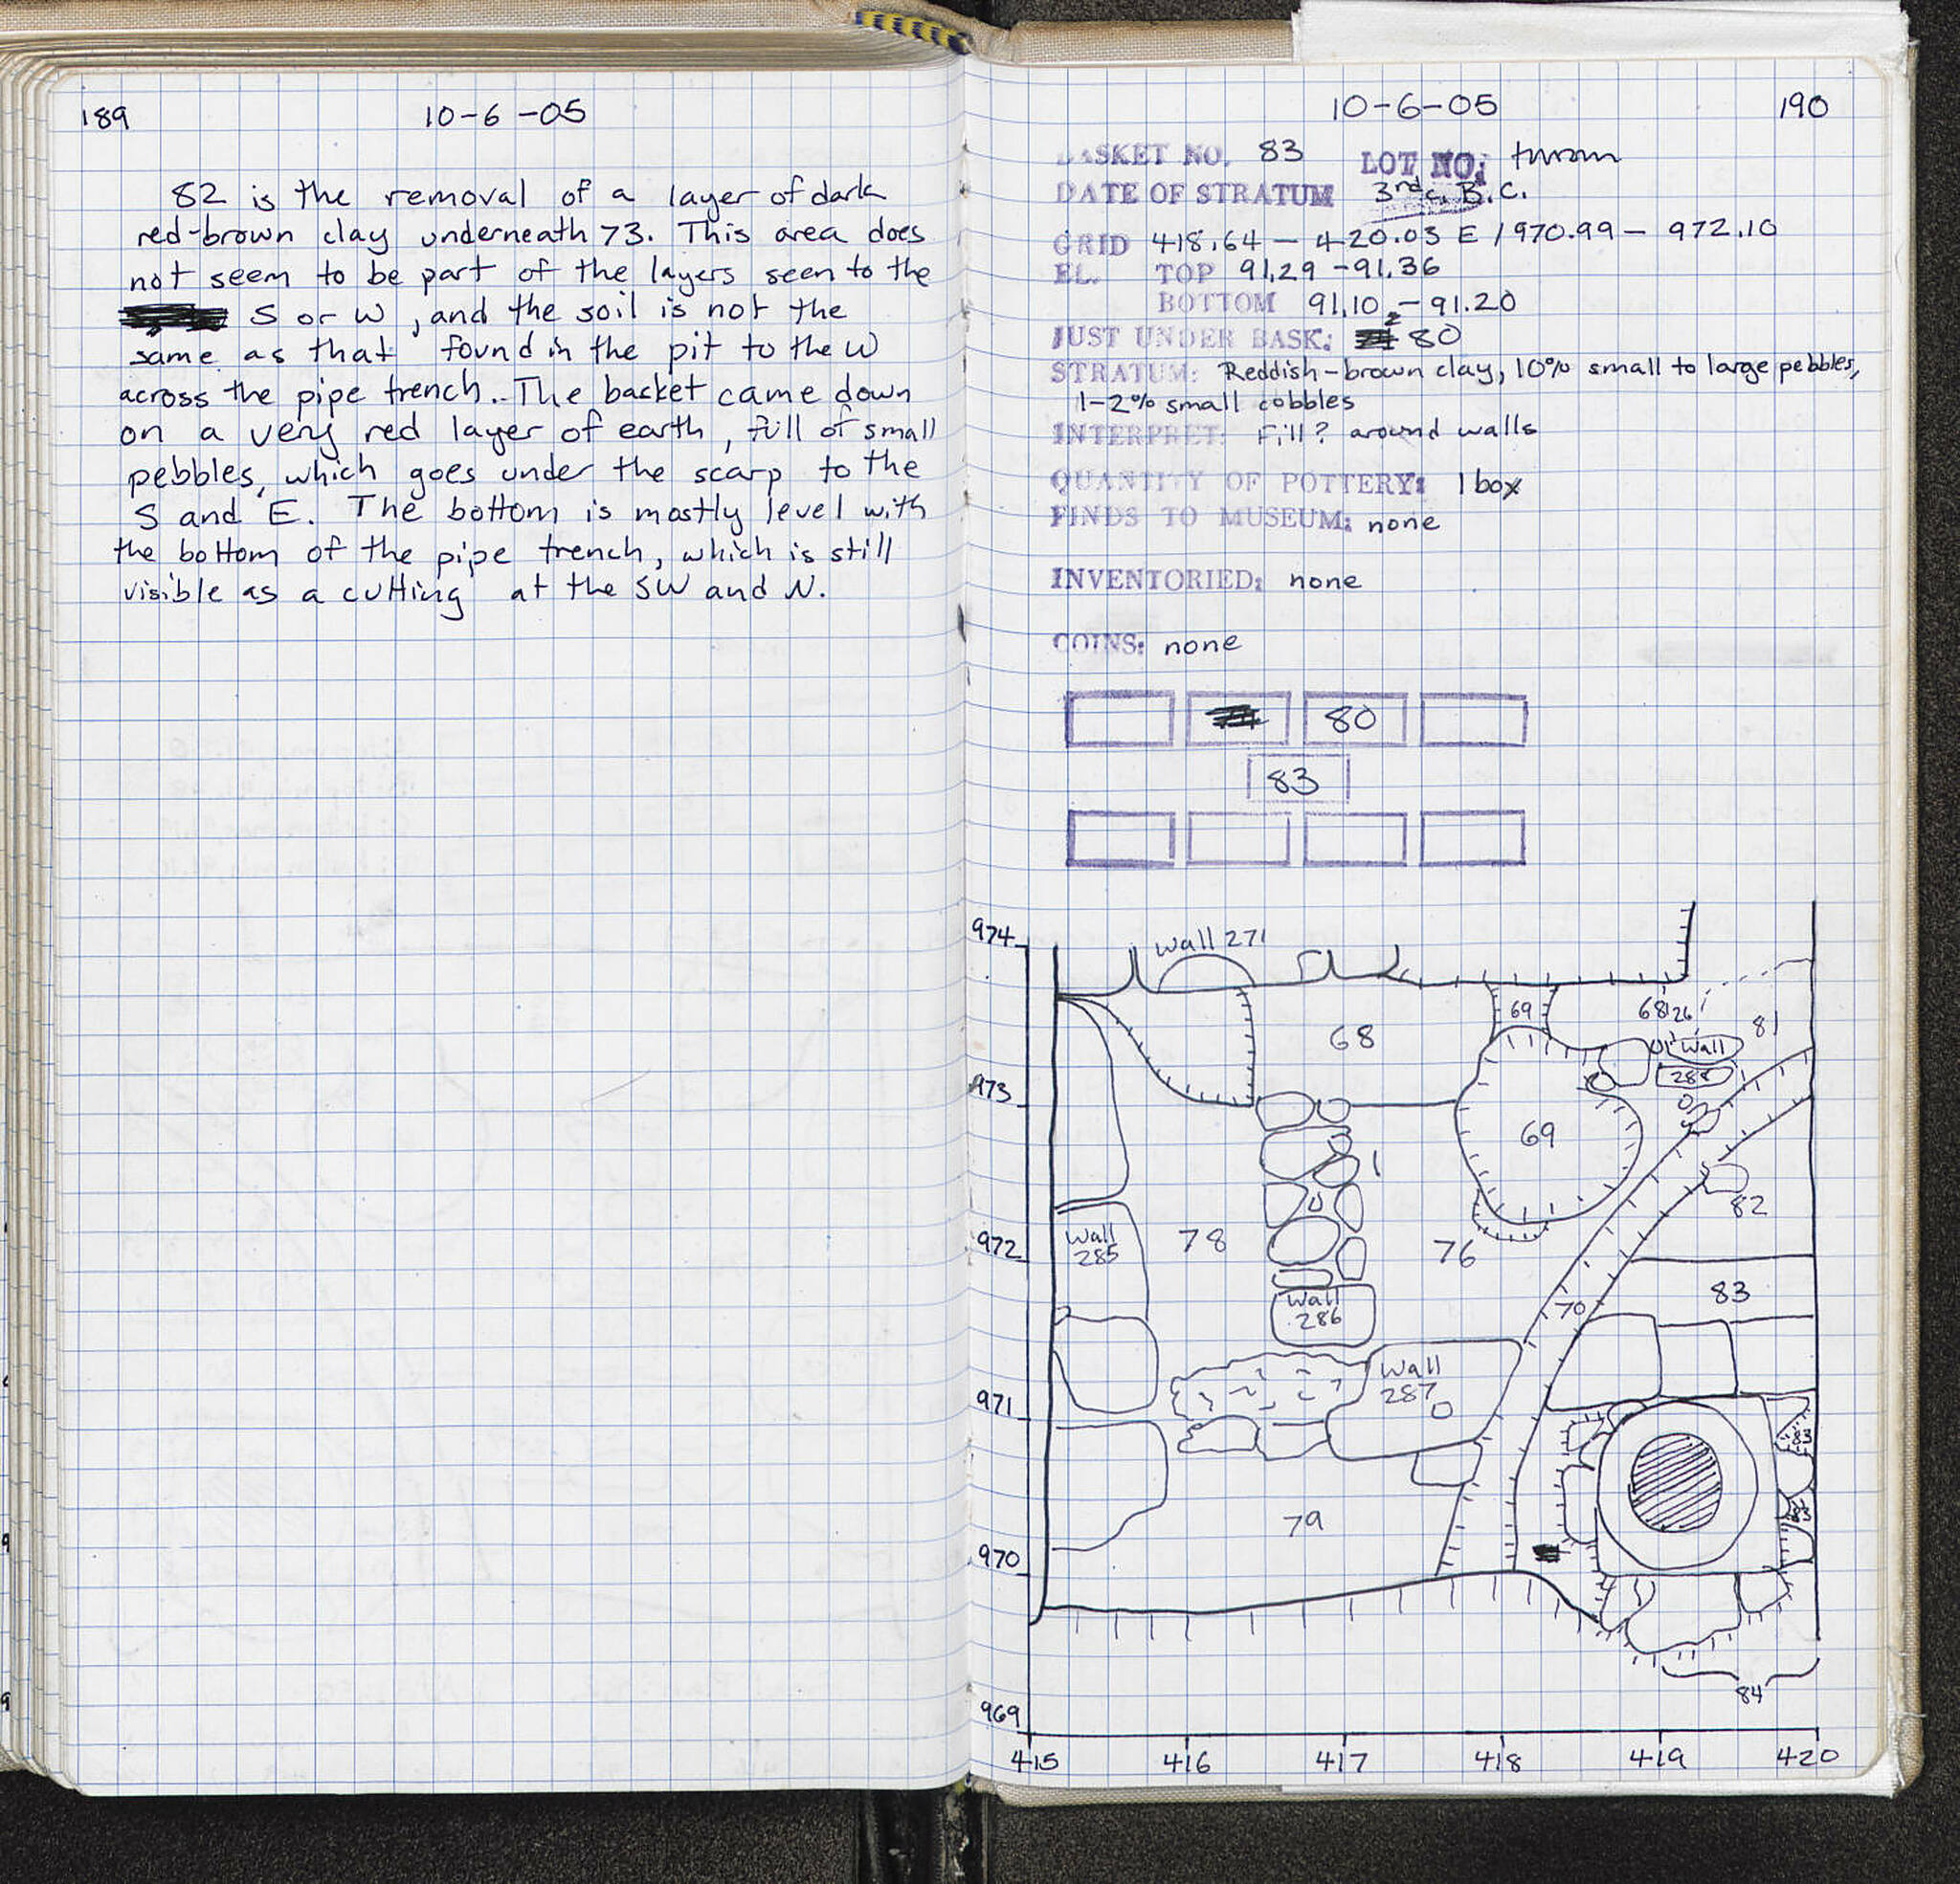 189
10-6-05
82 is the removal of a layer of dark
red-brown clay underneath 73. This area does
not seem to be part of the layers seen to the
S or W, and the soil is not the
same as that found in the pit to the W
across the pipe trench. The basket came down
on a very red layer of earth, full of small
pebbles, which goes under the scarp to the
S and E. The bottom is mostly level with
the bottom of the pipe trench, which is still
visible as a cutting at the SW and N.
10-6-05
190
BASKET NO. 83 LOT NO:
DATE OF STRATUM 3rd c. B.C.
GRID 418.64 – 420.03 E / 970.99 – 972.10
EL. TOP 91.29 – 91.36
BOTTOM 91.10 – 91.20
JUST UNDER BASK: 80
STRATUM: Reddish-brown clay, 10% small to large pebbles,
1-2% small cobbles
INTERPRET: Fill? around walls
QUANTITY OF POTTERY: 1 box
FINDS TO MUSEUM: none
INVENTORIED: none
COINS: none
80
83
974
Wall 271
69
68
68
81
Wall
288
973
69
82
Wall
285
972
78
76
83
70
Wall
286
Wall
287
971
79
970
84
969
415
416
417
418
419
420